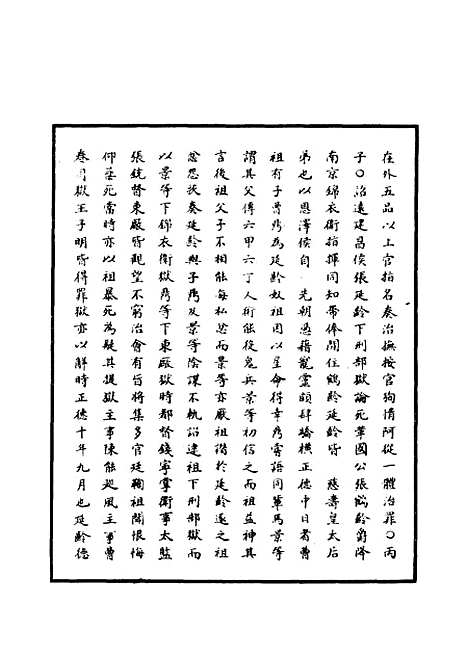 在外五品以上官指名奏治撫按官徇情阿從一體治罪〇丙
子〇詔逮建昌侯張延齡下刑部獄論死革國公張鶴齡爵降
南京錦衣衛指揮同知帶俸閒住鶴齡延齡皆　慈壽皇太后
弟也以恩澤侯自　先朝憑藉寵靈頗肆驕橫正德中日者曹
祖有子曹鼎為延齡奴祖因以星命得幸鼎常語同輩馬景等
謂其父傳六甲六丁人術能役鬼兵景等初信之而祖益神其
言後祖父子不相能每私怨而景等亦厭祖譖於延齡遂之祖
忿恐扶奏延齡與子鼎及景等陰謀不軌詔逮祖下刑部獄而
以景等下錦衣衛獄鼎等下東廠獄時都督錢寧掌衛事太監
張銳督東廠皆觀望不窮治會有旨將集多官廷鞫祖聞恨悔
仰藥死當時亦以祖暴死為疑其提獄主事陳能巡風主事曹
春司獄王子明皆得罪獄亦以解時正德十年九月也延齡德